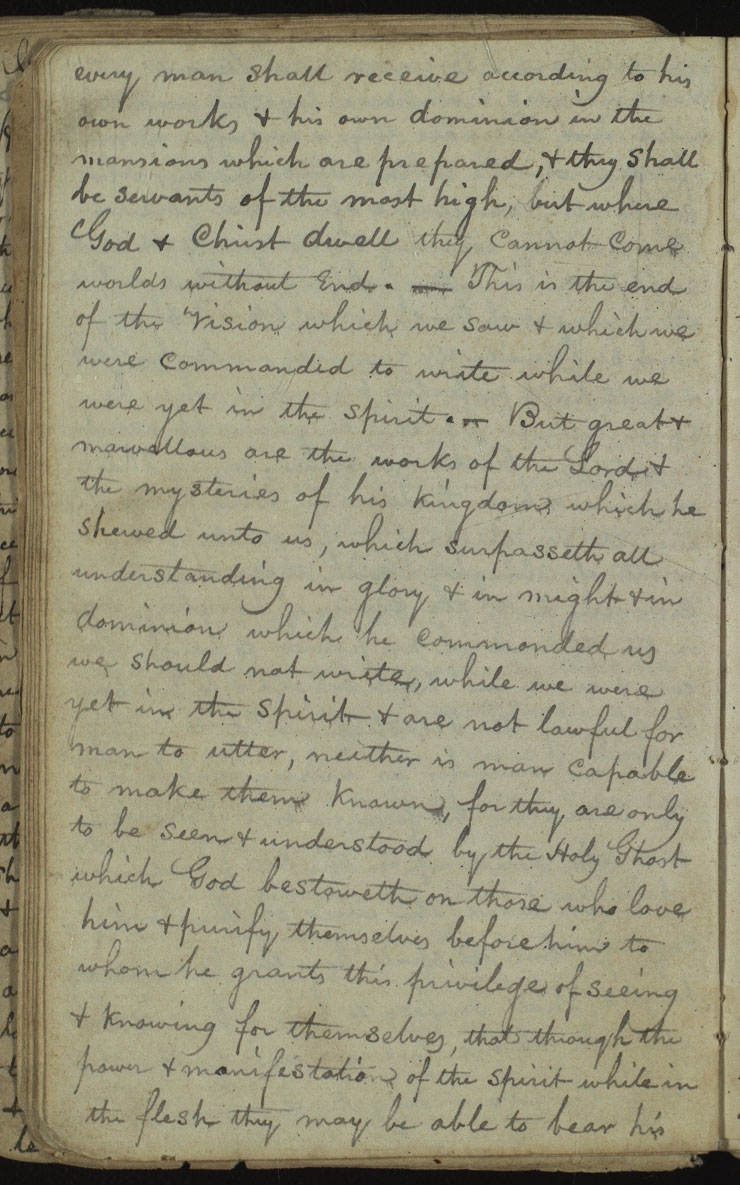 every man shall receive according to his
own works & his own dominion in the
mansions which are prepared, & they shall
be servants of the most high, but where
God & Christ dwell they cannot come
worlds without End. — This is the end
of the Vision which we saw & which we
were commanded to write while we
were yet in the spirit. — But great &
marvellous are the works of the Lord &
the mysteries of his Kingdom which he
shewed unto us, which surpasseth all
understanding in glory & in might & in
dominion which he commanded us
we should not write, while we were
yet in the Spirit & are not lawful for
man to utter, neither is man capable
to make them Known, for they are only
to be seen & understood by the Holy Ghost
which God bestoweth on those who love
him & purify themselves before him to
whom he grants this privilege of seeing
& Knowing for themselves, that through the
power & manifestation of the spirit while in
the flesh they may be able to bear his